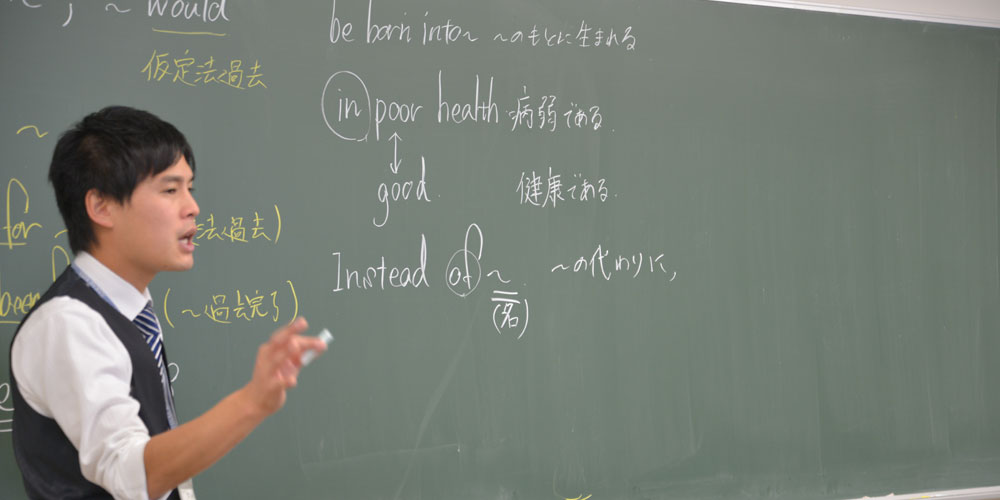 ~ would
仮定法過去
~
for ~ 法過去)
been (~過去完了)
be born into~ ~のもとに生まれる
in poor health 病弱である.
↕
good. 健康である.
Instead of ~. ~の代わりに,
(名)